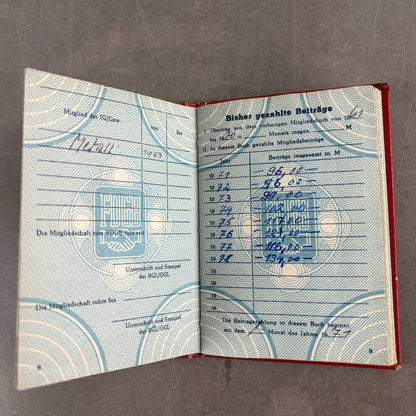 Mitglied der IG/Gew. von bis
Metall 1953
FDGB
Die Mitgliedschaft zum FDGB ruht seit
Unterschrift und Stempel
der BGL/OGL
Die Mitgliedschaft ruhte bis
Unterschrift und Stempel
der BGL/OGL
8
Bisher gezahlte Beiträge
I. Übertrag aus dem vorherigen Mitgliedsbuch von 1961
bis 1970 = Monate insges. M
II. In diesem Buch gezahlte Mitgliedsbeiträge
Jahr Beiträge insgesamt in M
1971 96,00
1972 96,00
1973 99,00
1974
1975 117,00
1976
1977 116,00
1978 134,00
19
19
19
19
Die Beitragszahlung in diesem Buch beginnt
mit dem 1. Monat des Jahres 1971
9